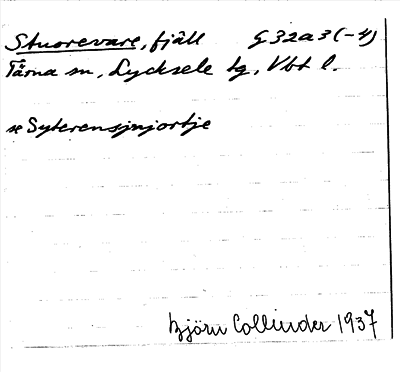 Stuorevare, fjäll G32a3(-4)
Tärna sn, Lycksele tg, Vbt l.
se Syterensjnjortje
Björn Collinder 1937